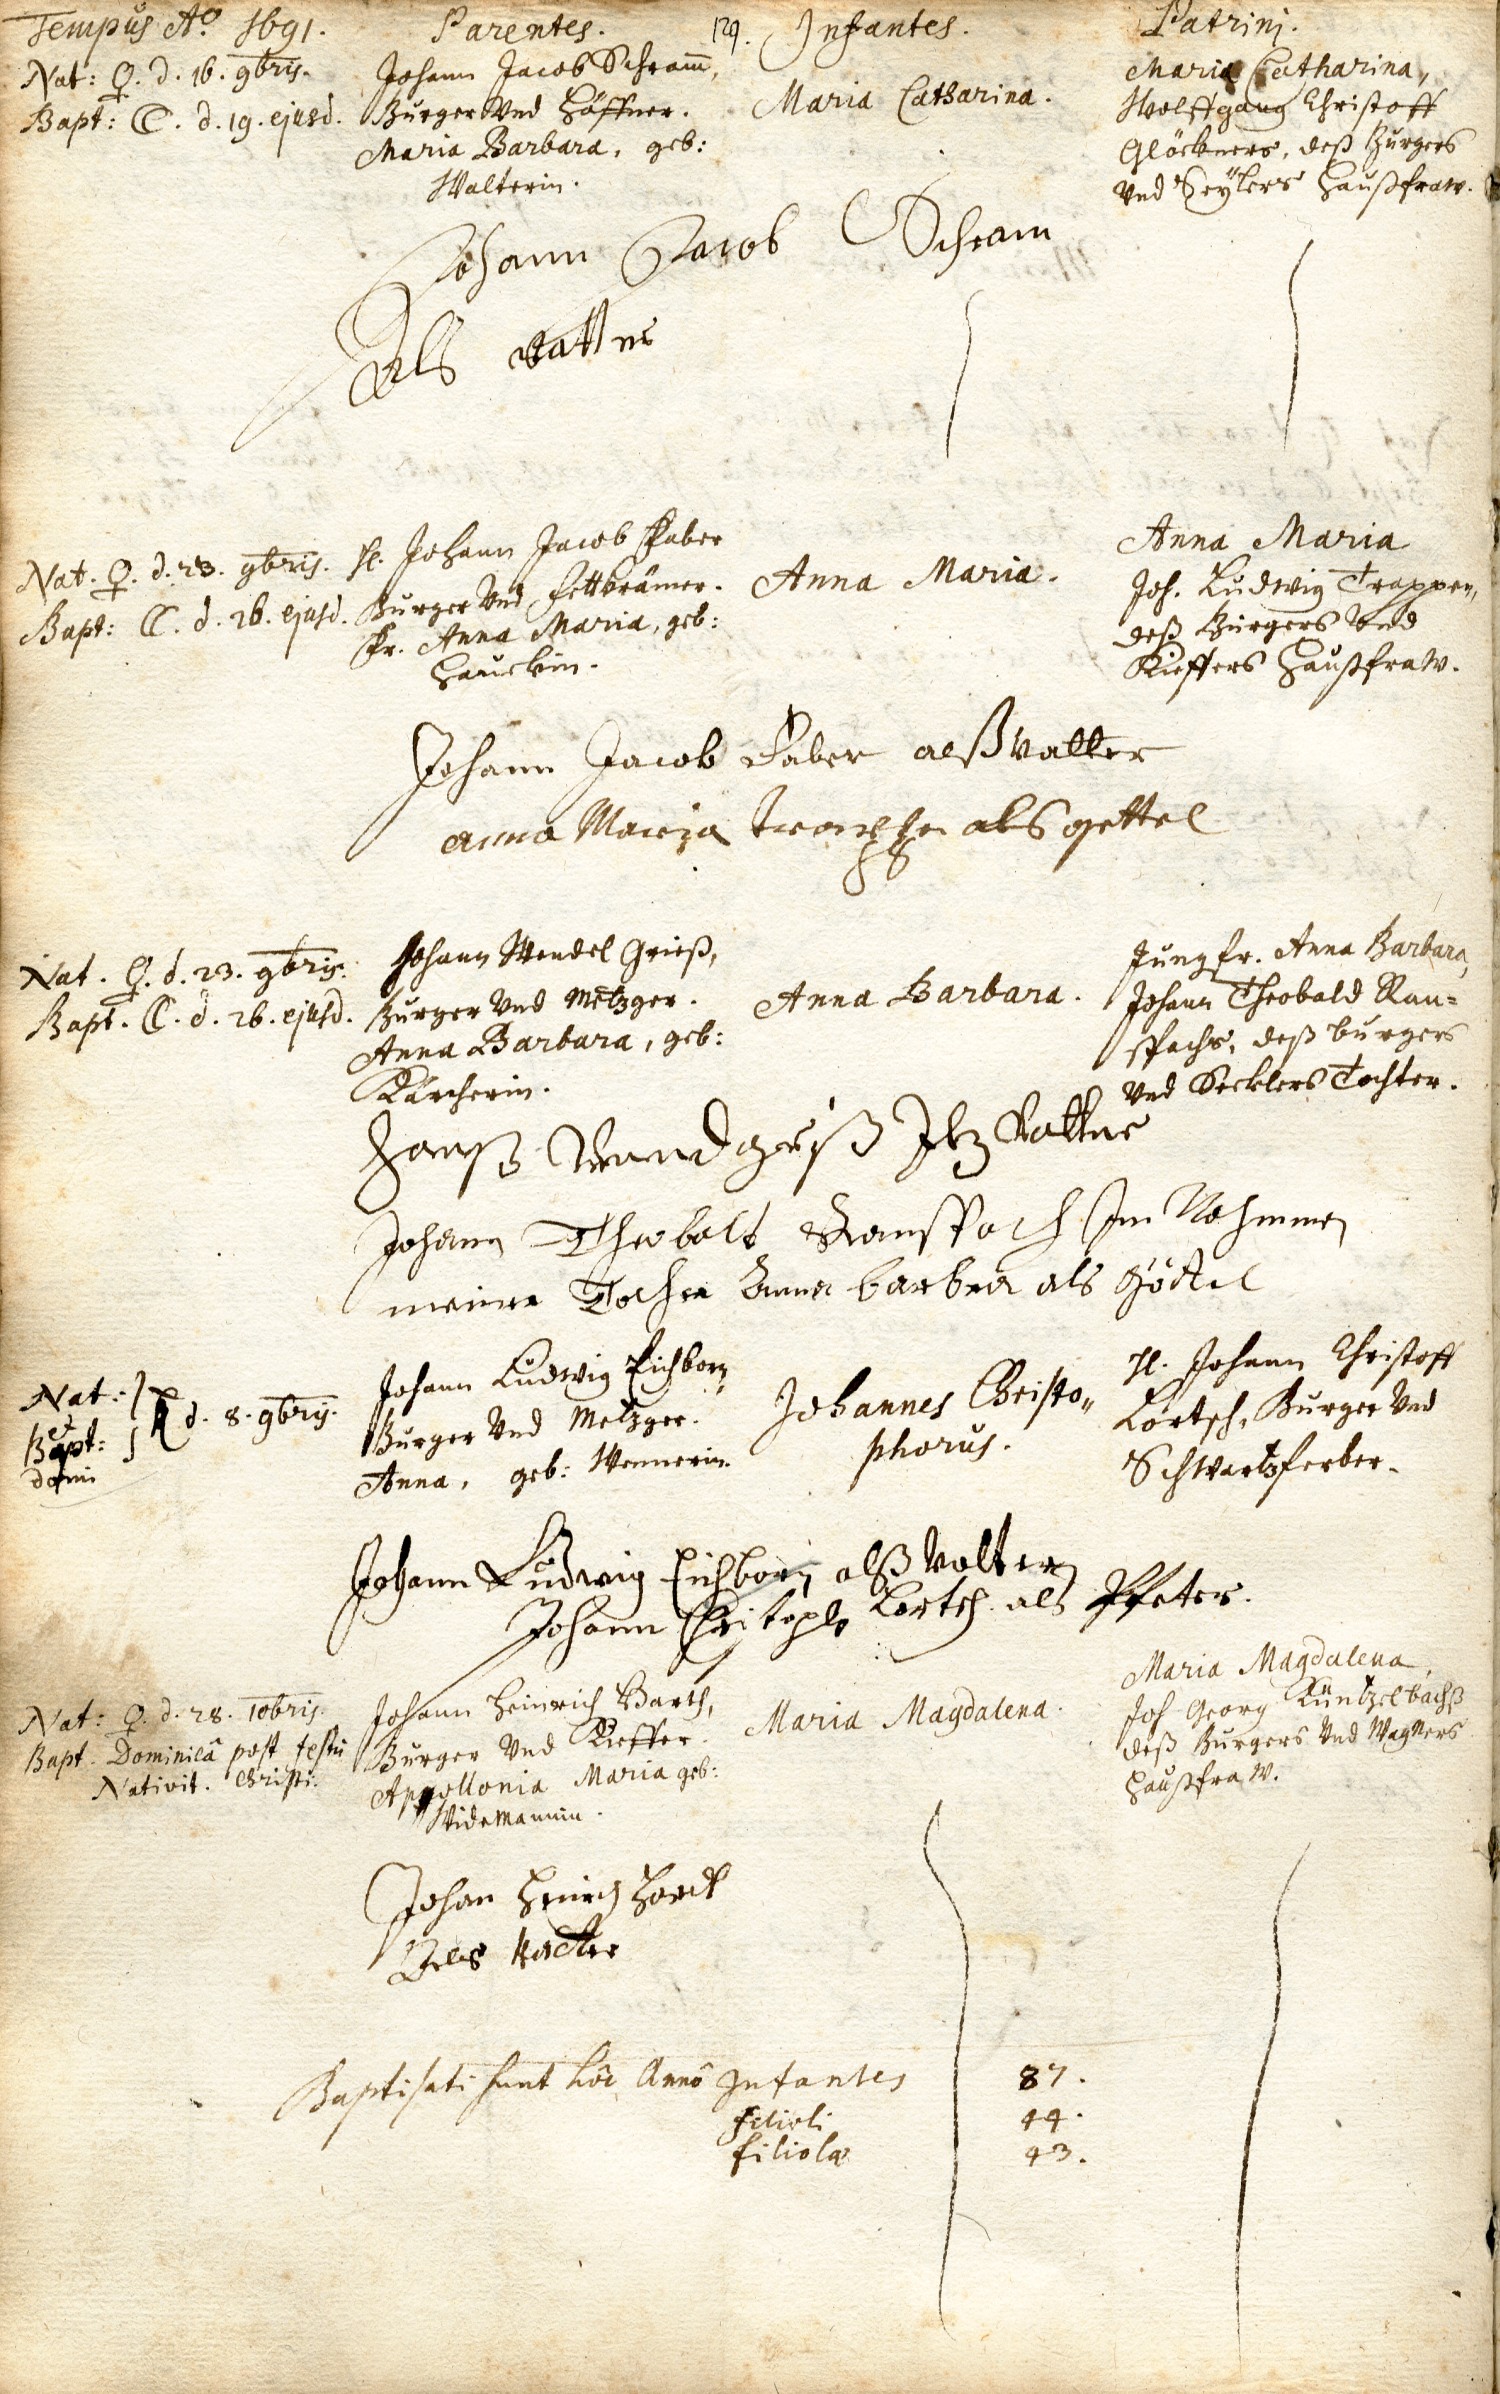 Tempus Aō 1691.
Parentes.
129.
Infantes.
Patrini.
Nat: ♀. d. 16. 9bris.
Bapt: ☾. d. 19. ejusd.
Johann Jacob Schram̄,
Burger Vnd Häffner.
Maria Barbara, geb:
Walterin.
Maria Catharina.
Maria Catharina,
Wolffgang Christoff
Glöckners, deß Burgers
Vnd Seÿlers Haußfraw.
Johann Jacob Schram
Als Vatter
Nat. ♀. d. 23. 9bris.
Bapt: ☾. d. 26. ejusd.
H. Johann Jacob Faber
Burger Vnd Fettkrämer.
Fr. Anna Maria, geb:
Hauckin.
Anna Maria.
Anna Maria
Joh. Ludwig Trappen,
deß Burgers Vnd
Kieffers Haußfraw.
Johann Jacob Faber alß Vatter
anna Maria als gettel
Nat. ♀. d. 23. 9bris.
Bapt. ☾. d. 26. ejusd.
Johann Wendel Grieß,
Burger Vnd Metzger.
Anna Barbara, geb:
Kärcherin.
Anna Barbara.
Jungfr. Anna Barbara,
Johann Theobald Ran=
spachs, deß burgers
Vnd Secklers Tochter.
Hanß Wendel Grieß Vatter
Johann Theobalt Ranspach Im Nahmen
meiner Tochter Anna barbra als Göttel
Nat:
et
Bapt:
domi
d. 8. 9bris.
Johann Ludwig Eichborn
Burger Vnd Metzger.
Anna, geb: Wennerin.
Johannes Christo„
phorus.
H. Johann Christoff
Lörtsch, Burger Vnd
Schwartzferber.
Johann Ludwig Eichborn alß Vatter
Johann Christoph Lortsch als Pfetter.
Nat: ♀. d. 28. 10bris.
Bapt. Dominicâ post festū
Nativit. Christi.
Johann Heinrich Barth,
Burger Vnd Kieffer.
Appollonia Maria geb:
Widemannin.
Maria Magdalena.
Maria Magdalena,
Joh Georg Küntzelbachß
deß Burgers Vnd Wagners
Haußfraw.
Johan Heinrich
Als Vatter
Baptisati sunt hôc Annô Infantes 87.
filioli 44.
filiolæ 43.